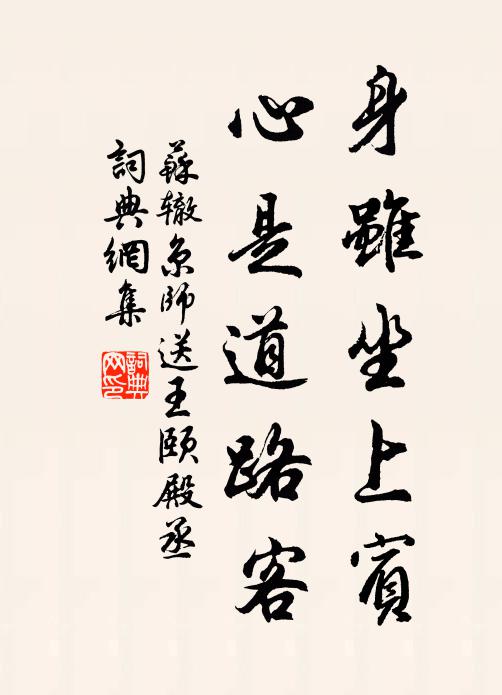 身雖坐上賓
心是道路客
蘇辙京師送王頤殿丞
詞典網集
詞典
网印